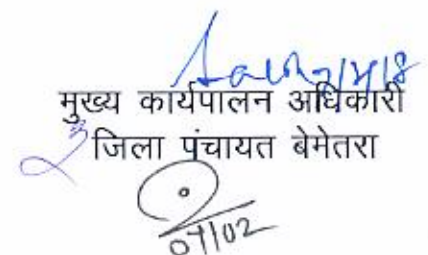 मुख्य कार्यपालन अधिकारी
जिला पंचायत बेमेतरा
07/02